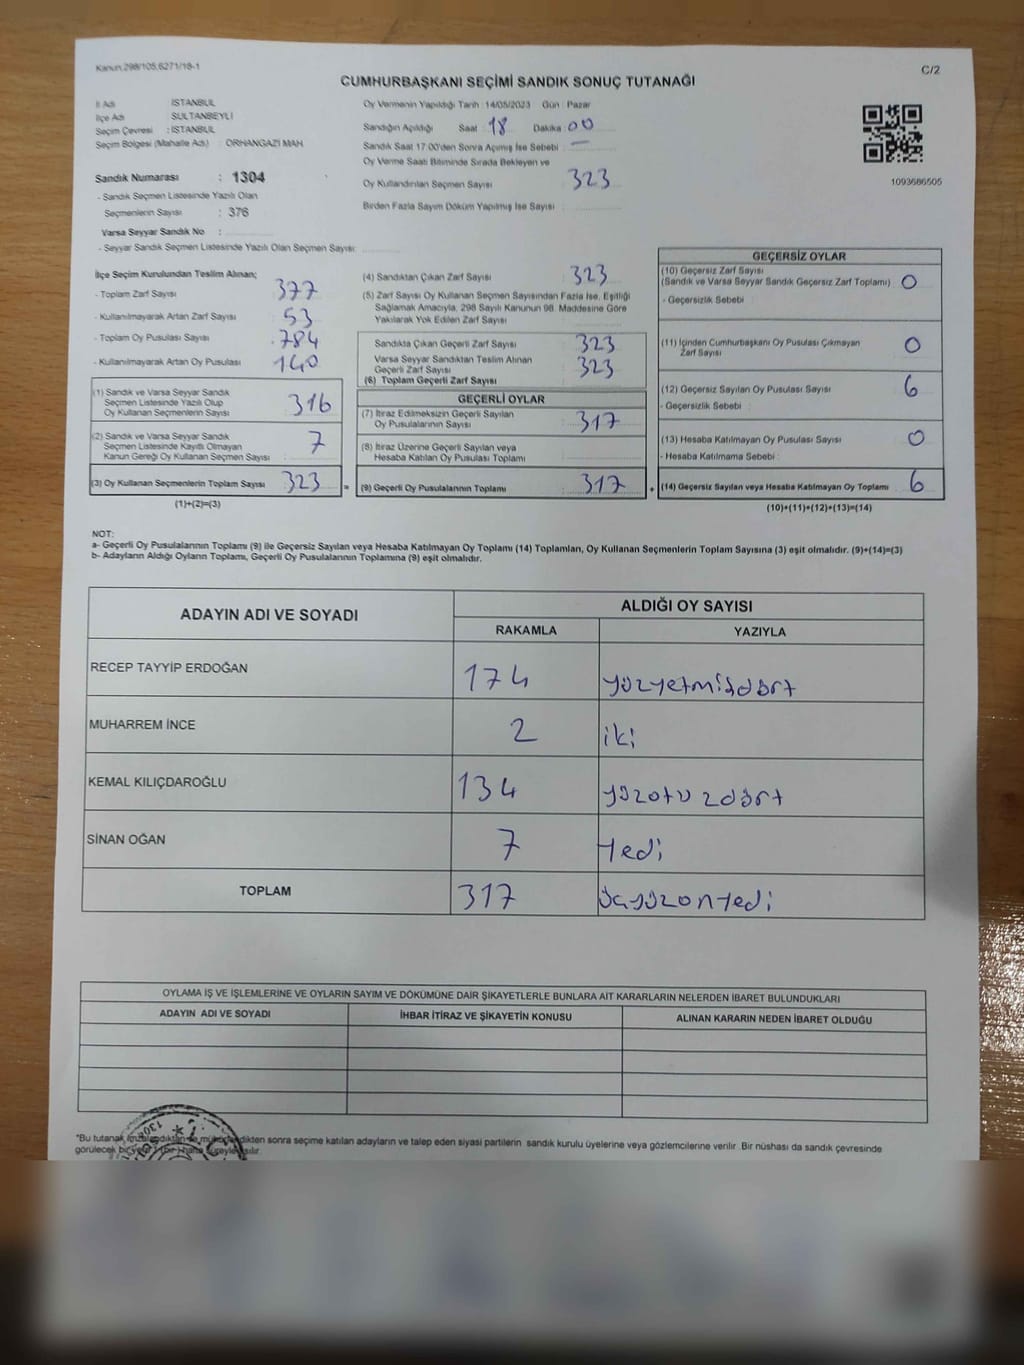 Kanun.298/105,6271/18-1
C/2
CUMHURBAŞKANI SEÇİMİ SANDIK SONUÇ TUTANAĞI
İl Adı : İSTANBUL
İlçe Adı : SULTANBEYLİ
Seçim Çevresi : İSTANBUL
Seçim Bölgesi (Mahalle Adı) : ORHANGAZİ MAH.
Sandık Numarası : 1304
- Sandık Seçmen Listesinde Yazılı Olan
Seçmenlerin Sayısı : 376
Varsa Seyyar Sandık No :
- Seyyar Sandık Seçmen Listesinde Yazılı Olan Seçmen Sayısı:
Oy Vermenin Yapıldığı Tarih :14/05/2023 Gün : Pazar
Sandığın Açıldığı Saat : 18 Dakika : 00
Sandık Saat 17:00'den Sonra Açılmış İse Sebebi : —
Oy Verme Saati Bitiminde Sırada Bekleyen ve
Oy Kullandırılan Seçmen Sayısı : 323
Birden Fazla Sayım Döküm Yapılmış İse Sayısı :
1093686505
İlçe Seçim Kurulundan Teslim Alınan;
- Toplam Zarf Sayısı : 377
- Kullanılmayarak Artan Zarf Sayısı : 53
- Toplam Oy Pusulası Sayısı : 784
- Kullanılmayarak Artan Oy Pusulası : 140
(1) Sandık ve Varsa Seyyar Sandık
Seçmen Listesinde Yazılı Olup
Oy Kullanan Seçmenlerin Sayısı : 316
(2) Sandık ve Varsa Seyyar Sandık
Seçmen Listesinde Kayıtlı Olmayan
Kanun Gereği Oy Kullanan Seçmen Sayısı : 7
(3) Oy Kullanan Seçmenlerin Toplam Sayısı : 323 =
(1)+(2)=(3)
(4) Sandıktan Çıkan Zarf Sayısı : 323
(5) Zarf Sayısı Oy Kullanan Seçmen Sayısından Fazla İse, Eşitliği
Sağlamak Amacıyla, 298 Sayılı Kanunun 98. Maddesine Göre
Yakılarak Yok Edilen Zarf Sayısı :
Sandıkta Çıkan Geçerli Zarf Sayısı : 323
Varsa Seyyar Sandıktan Teslim Alınan
Geçerli Zarf Sayısı : 323
(6) Toplam Geçerli Zarf Sayısı :
GEÇERLİ OYLAR
(7) İtiraz Edilmeksizin Geçerli Sayılan
Oy Pusulalarının Sayısı : 317
(8) İtiraz Üzerine Geçerli Sayılan veya
Hesaba Katılan Oy Pusulası Toplamı :
(9) Geçerli Oy Pusulalarının Toplamı : 317 +
GEÇERSİZ OYLAR
(10) Geçersiz Zarf Sayısı
(Sandık ve Varsa Seyyar Sandık Geçersiz Zarf Toplamı) : 0
- Geçersizlik Sebebi :
(11) İçinden Cumhurbaşkanı Oy Pusulası Çıkmayan
Zarf Sayısı : 0
(12) Geçersiz Sayılan Oy Pusulası Sayısı : 6
- Geçersizlik Sebebi :
(13) Hesaba Katılmayan Oy Pusulası Sayısı : 0
- Hesaba Katılmama Sebebi :
(14) Geçersiz Sayılan veya Hesaba Katılmayan Oy Toplamı : 6
(10)+(11)+(12)+(13)=(14)
NOT:
a- Geçerli Oy Pusulalarının Toplamı (9) ile Geçersiz Sayılan veya Hesaba Katılmayan Oy Toplamı (14) Toplamları, Oy Kullanan Seçmenlerin Toplam Sayısına (3) eşit olmalıdır. (9)+(14)=(3)
b- Adayların Aldığı Oyların Toplamı, Geçerli Oy Pusulalarının Toplamına (9) eşit olmalıdır.
ADAYIN ADI VE SOYADI
ALDIĞI OY SAYISI
RAKAMLA YAZIYLA
RECEP TAYYİP ERDOĞAN 174 yüzyetmişdört
MUHARREM İNCE 2 iki
KEMAL KILIÇDAROĞLU 134 yüzotuzdört
SİNAN OĞAN 7 Yedi
TOPLAM 317 üçyüzonyedi
OYLAMA İŞ VE İŞLEMLERİNE VE OYLARIN SAYIM VE DÖKÜMÜNE DAİR ŞİKAYETLERLE BUNLARA AİT KARARLARIN NELERDEN İBARET BULUNDUKLARI
ADAYIN ADI VE SOYADI İHBAR İTİRAZ VE ŞİKAYETİN KONUSU ALINAN KARARIN NEDEN İBARET OLDUĞU
*Bu tutanak sonra seçime katılan adayların ve talep eden siyasi partilerin sandık kurulu üyelerine veya gözlemcilerine verilir. Bir nüshası da sandık çevresinde
görülecek bir